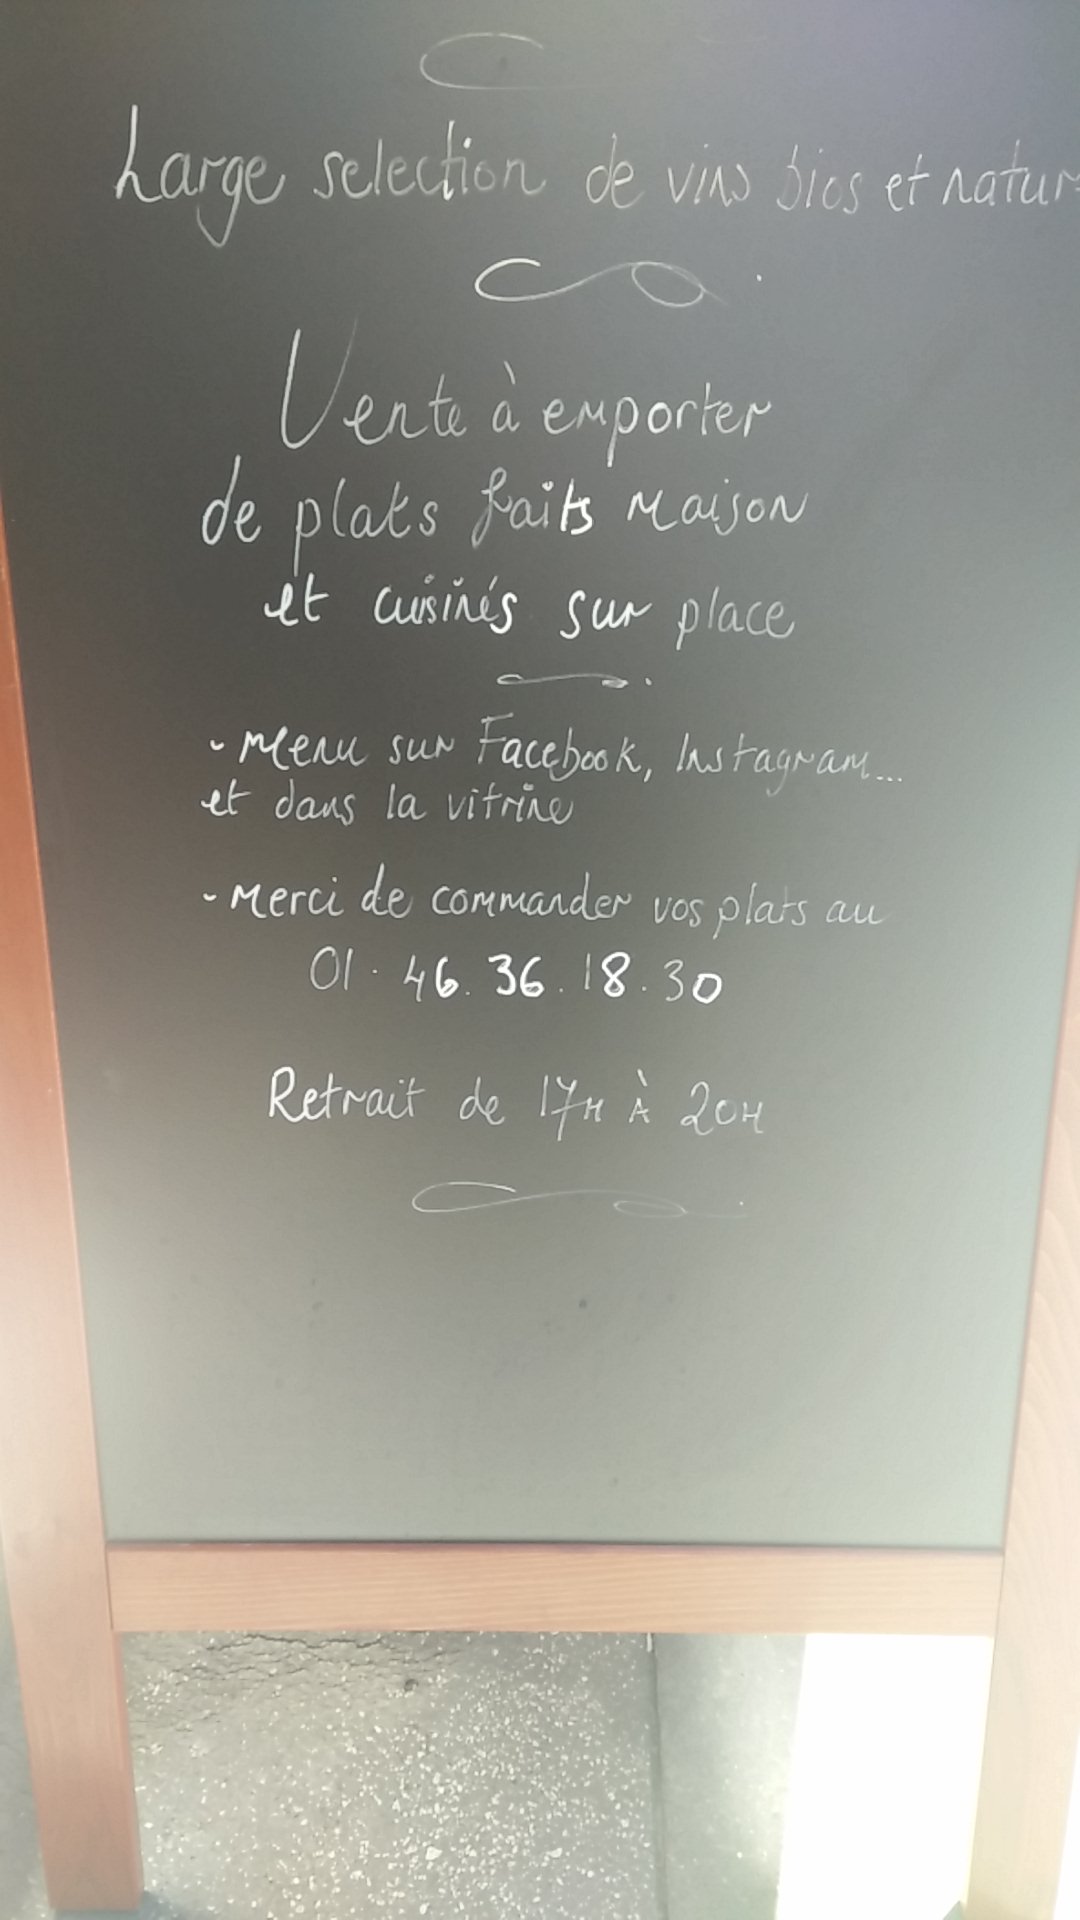 Large selection de vins bios et natur
Vente à emporter
de plats faits maison
et cuisinés sur place
- Menu sur Facebook, Instagram...
et dans la vitrine
- Merci de commander vos plats au
01.46.36.18.30
Retrait de 17H À 20H